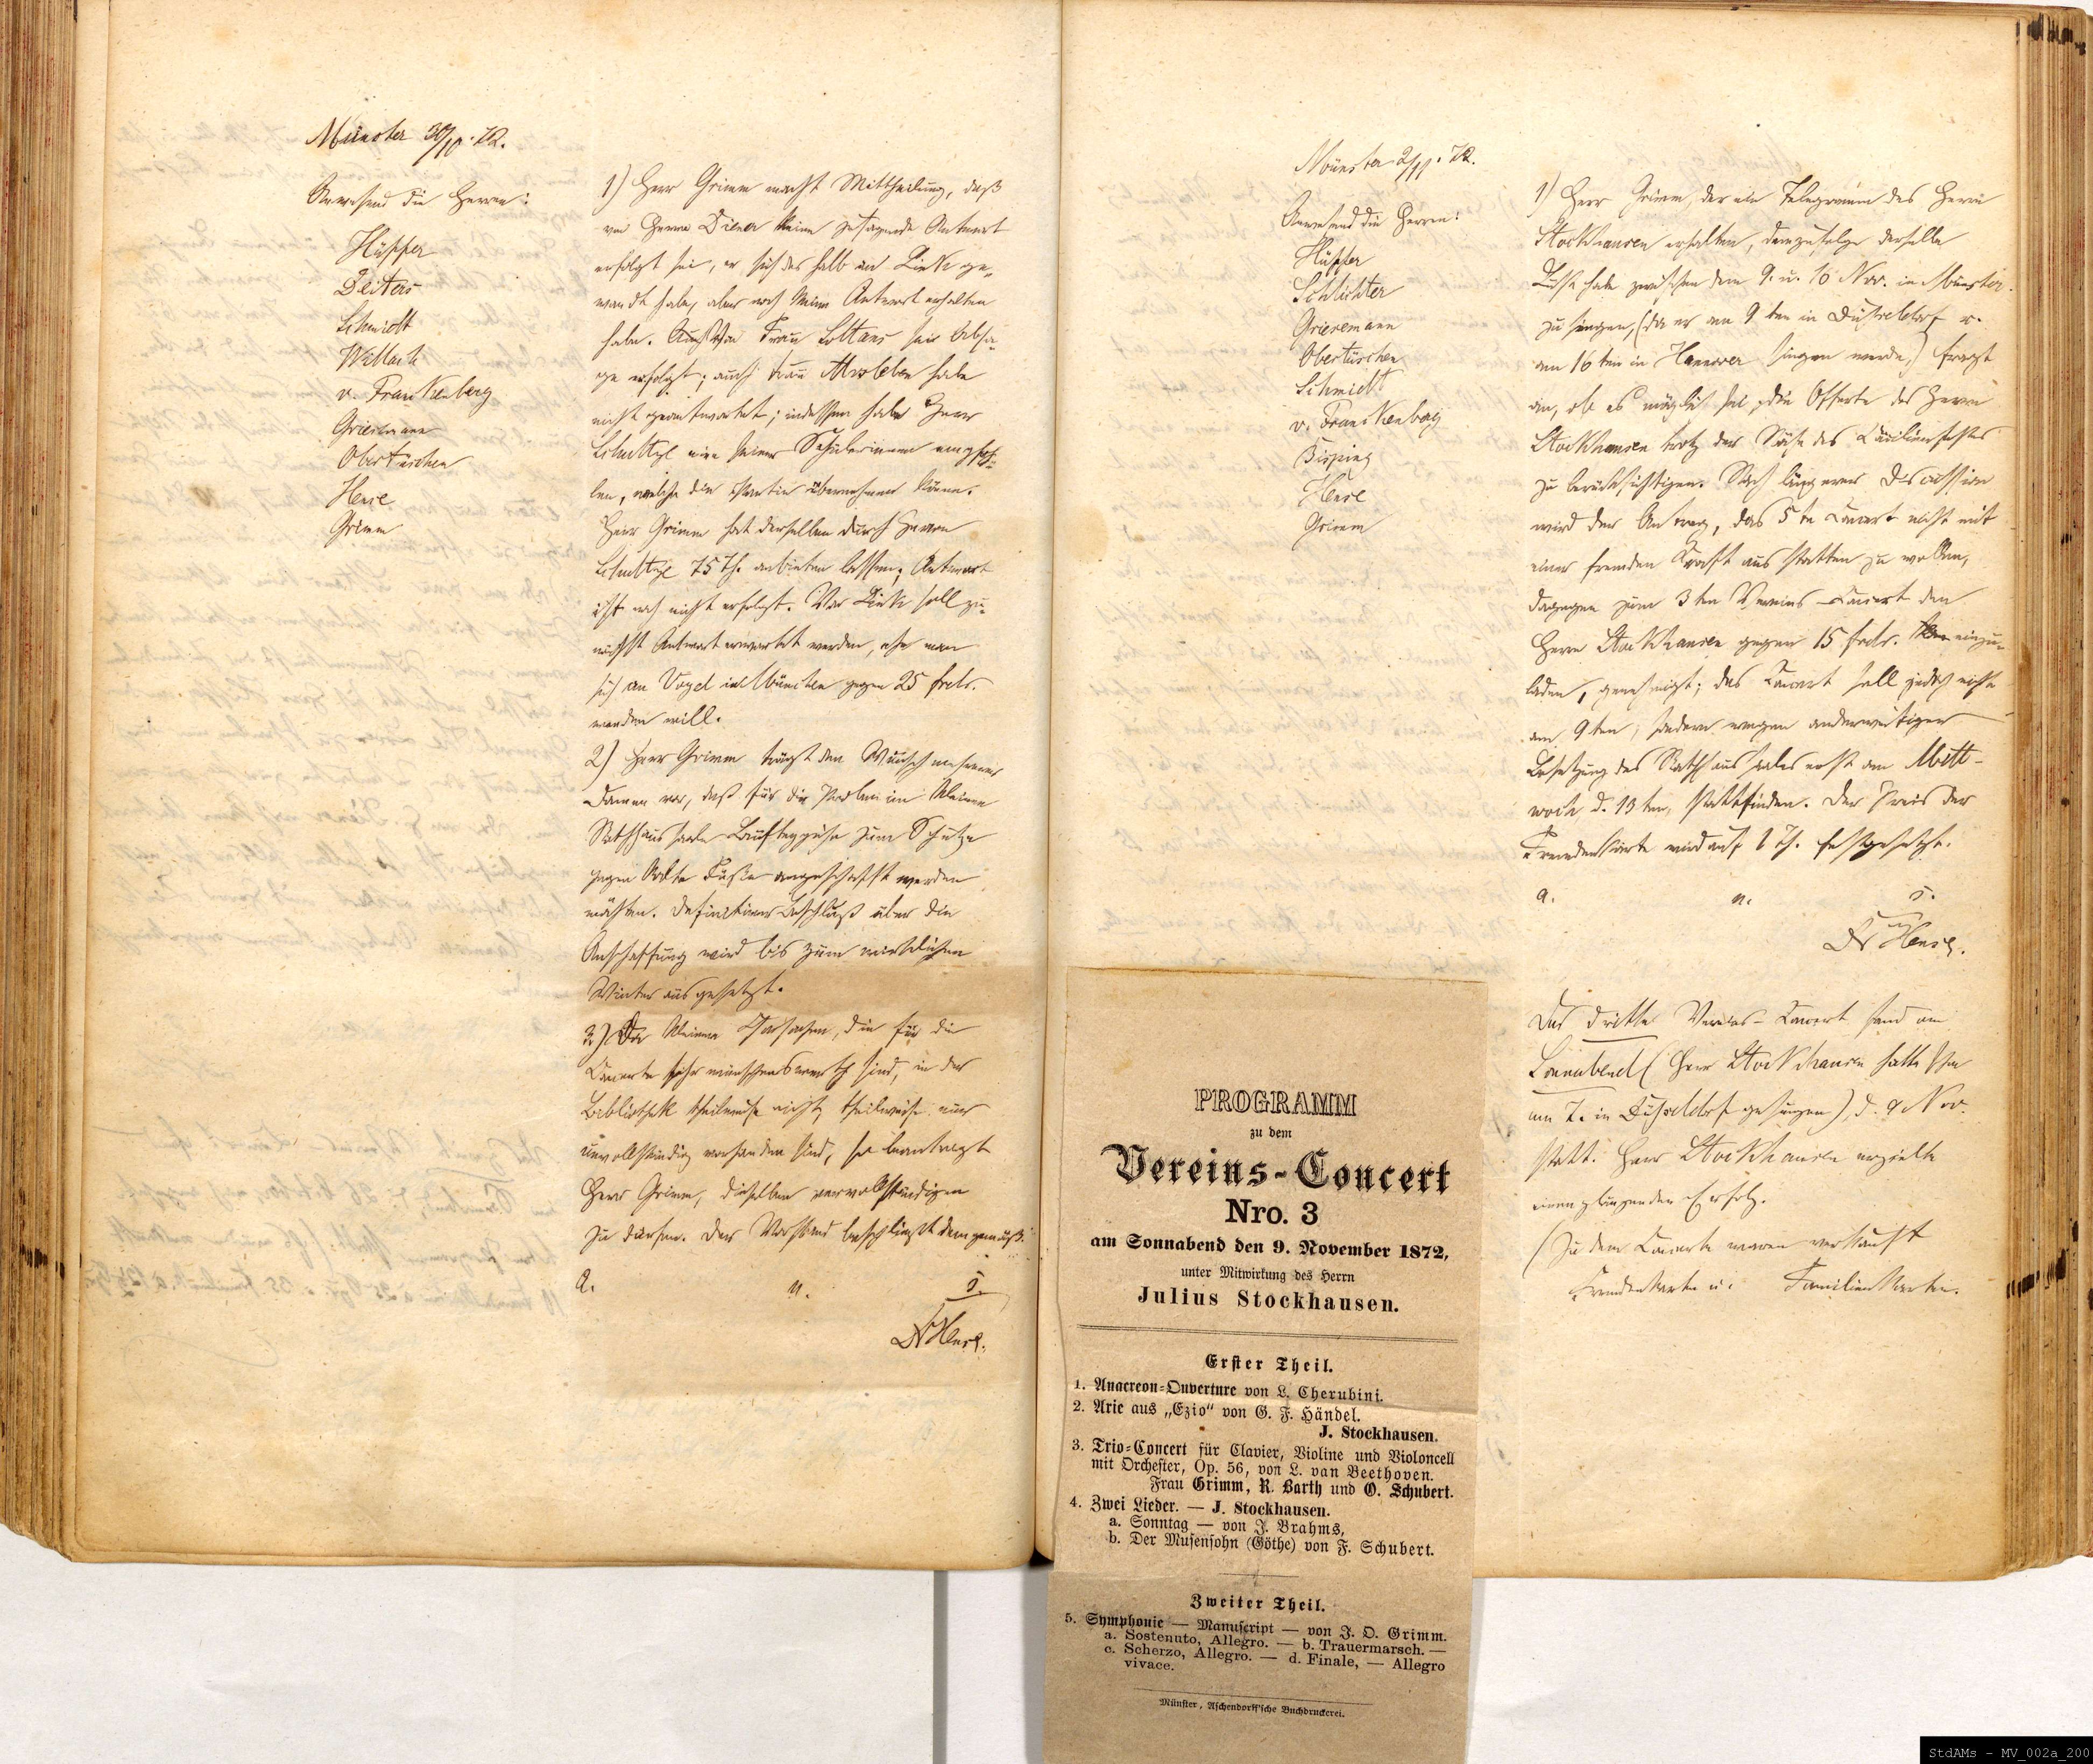 Münster 30/10. 72.
Anwesend die Herren:
Hüffer
Deiters
Schmidt
Wittach
v. Frankenberg
Griesemann
Obertüschen
Hense
Grimm
1) Herr Grimm macht Mittheilung, daß
von Herrn Diener keine zusagende Antwort
erfolgt sei, er sich deshalb an Link ge-
wandt habe, aber noch keine Antwort erhalten
habe. Von Frau Lottans sei Absa-
ge erfolgt; auch Frau Alvsleben habe
nicht geantwortet; indessen habe Herr
Schultze eine seiner Schülerinnen empfoh-
len, welche die Partie übernehmen könne.
Herr Grimm hat derselben durch Herrn
Schultze 75 Th. anbieten lassen; Antwort
ist noch nicht erfolgt. Von Link soll zu-
nächst Antwort erwartet werden, ehe man
sich an Vogel in München gegen 25 frdr.
wenden will.
2) Herr Grimm trägt den Wunsch mehrerer
Damen vor, daß für die Proben im kleinen
Rathhaussaale Laufteppiche zum Schutze
gegen kalte Füße angeschafft werden
möchten. Definitiver Beschluß über die
Anschaffung wird bis zum wirklichen
Winter ausgesetzt.
3) Da kleinere Chorsachen, die für die
Concerte sehr wünschenswerth sind, in der
Bibliothek theilweise nicht, theilweise nur
unvollständig vorhanden sind, so beantragt
Herr Grimm, dieselben vervollständigen
zu dürfen. Der Vorstand beschließt demgemäß.
a. u. s.
Dr Hense.
Münster 2/11. 72.
Anwesend die Herren:
Hüffer
Schlichter
Griesemann
Obertüschen
Schmidt
v. Frankenberg
Bisping
Hense
Grimm
1) Herr Grimm, der ein Telegramm des Herrn
Stockhausen erhalten, demzufolge derselbe
Lust habe zwischen dem 9. u. 16 Nov. in Münster
zu singen, (da er am 9ten in Düsseldorf u.
am 16ten in Hannover singen werde,) fragt
an, ob es möglich sei, die Offerte des Herrn
Stockhausen trotz der Nähe des Cäcilienfestes
zu berücksichtigen. Nach längerer Discussion
wird der Antrag, das 5te Concert nicht mit
einer fremden Kraft ausstatten zu wollen,
dagegen zum 3ten Vereins-Concert den
Herrn Stockhausen gegen 15 frdr. einzu-
laden, genehmigt; das Concert soll jedoch nicht
am 9ten, sondern wegen anderweitiger
Besetzung des Rathhaussaales erst am Mitt-
woch, d. 13ten, stattfinden. Der Preis der
Fremdenkarte wird auf 1 Th. festgesetzt.
a. u. s.
Dr Hense.
Das dritte Vereins-Concert fand am
Sonnabend (Herr Stockhausen hatte schon
am 7. in Düsseldorf gesungen), d. 9 Nov.
statt. Herr Stockhausen erzielte
einen glänzenden Erfolg.
(Zu dem Concerte waren verkauft
Fremdenkarten u. Familienkarten.
PROGRAMM
zu dem
Vereins-Concert
Nro. 3
am Sonnabend den 9. November 1872,
unter Mitwirkung des Herrn
Julius Stockhausen.
Erster Theil.
1. Anacreon-Ouverture von L. Cherubini.
2. Arie aus „Ezio“ von G. F. Händel.
J. Stockhausen.
3. Trio-Concert für Clavier, Violine und Violoncell
mit Orchester, Op. 56, von L. van Beethoven.
Frau Grimm, R. Barth und O. Schubert.
4. Zwei Lieder. — J. Stockhausen.
a. Sonntag — von J. Brahms,
b. Der Musensohn (Göthe) von F. Schubert.
Zweiter Theil.
5. Symphonie — Manuscript — von J. O. Grimm.
a. Sostenuto, Allegro. — b. Trauermarsch. —
c. Scherzo, Allegro. — d. Finale, — Allegro
vivace.
Münster, Aschendorff'sche Buchdruckerei.
StdAMs - MV_002a_200